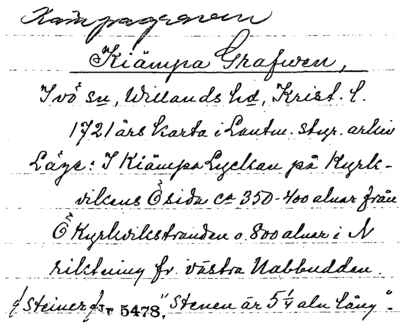 Kämpagraven
Kiämpa Grafwen,
Ivö sn, Willands hd, Krist. l.
1721 års karta i Lantm. styr. arkiv
Läge: I Kiämpa Lyckan på Kyrk-
vikens Ö sida ca 350-400 alnar från
Ö Kyrkvikstranden o. 800 alnar i N
riktning fr. västra Nabbudden.
"Stenen är 5 1/4 aln lång".
5478